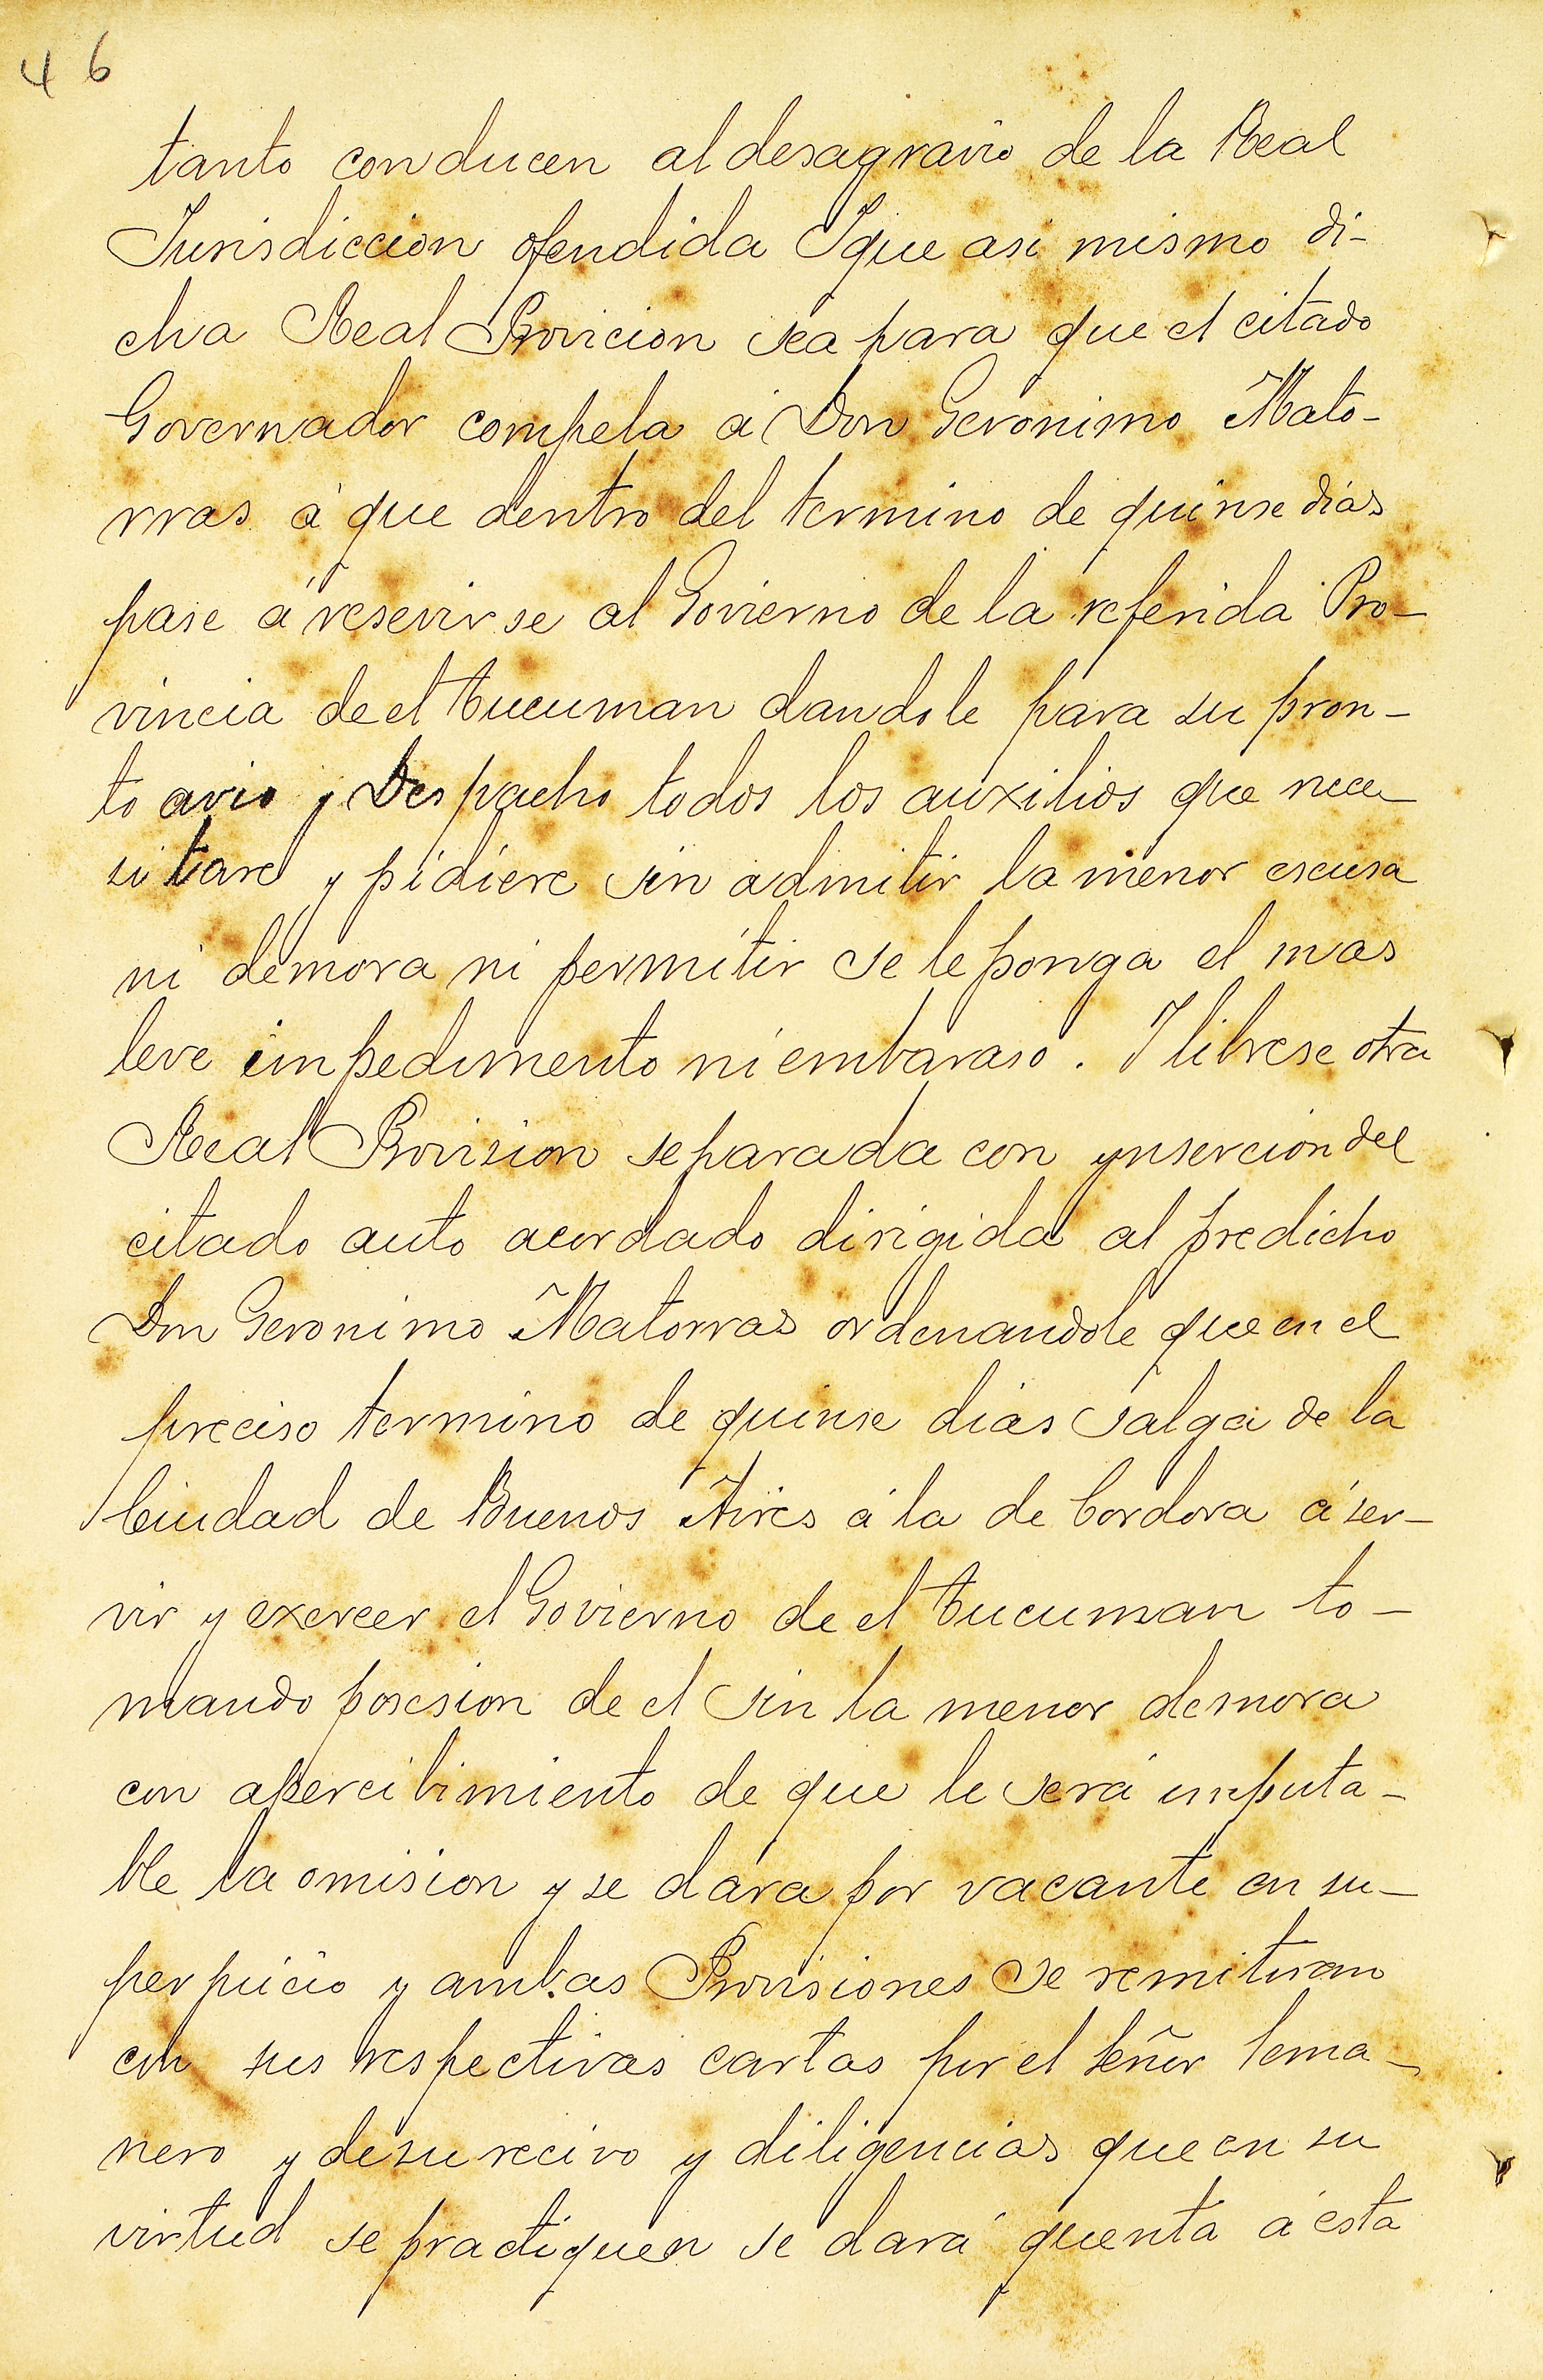 46
tanto conducen al desagravio de la Real
Jurisdiccion ofendida Ique asi mismo di-
cha Real Provicion sea para que el citado
Governador compela á Don Geronimo Mato-
rras á que dentro del termino de quinse dias
pase á resevirse al Govierno de la referida Pro-
vincia de el Tucuman dandole para su pron-
to avio y Despacho todos los auxilios que nece-
sitare y pidiere sin admitir la menor escusa
ni demora ni permitir se le ponga el mas
leve impedimento ni embaraso. I librese otra
Real Provision separada con ynsercion del
citado auto acordado dirigida al predicho
Don Geronimo Matorras ordenandole que en el
preciso termino de quinse dias salga de la
Ciudad de Buenos Aires á la de Cordova á ser-
vir y exercer el Govierno de el Tucuman to-
mando posesion de el sin la menor demora
con apercibimiento de que le será imputa-
ble la omision y se dara por vacante en su-
perpuicio y ambas Provisiones se remitiran
con sus respectivas cartas por el señor Sema-
nero y de su recivo y diligencias que en su
virtud se practiquen se dará quenta á esta